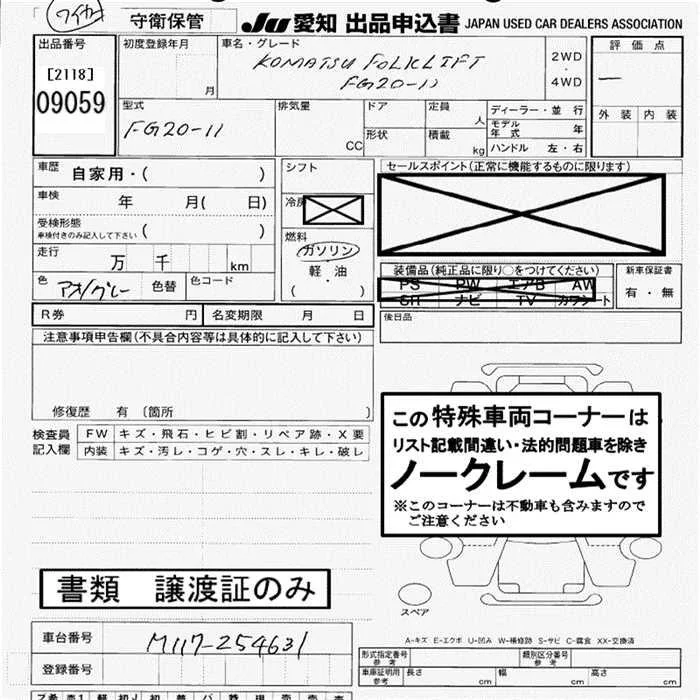 ワイカ
守衛保管
JU 愛知 出品申込書 JAPAN USED CAR DEALERS ASSOCIATION
出品番号
[2118]
09059
初度登録年月
月
車名・グレード
KOMATSU FOLKLIFT
FG20-11
2WD
・
4WD
評価点
—
外装 内装
型式
FG20-11
排気量
CC
ドア
形状
定員
人
積載
kg
ディーラー・並行
モデル年式 年
ハンドル 左・右
車歴
自家用・( )
車検
年 月( 日)
受検形態
車検付きのみ記入して下さい ( )
走行
万 千 km
色
アオ/グレー 色替
色コード
シフト
冷房
燃料
ガソリン
・
軽・油
( )
セールスポイント(正常に機能するものに限ります)
装備品(純正品に限り○をつけてください)
PS PW エアB AW
SR ナビ TV カワシート
新車保証書
有・無
R券 円 名変期限 月 日
後日品
注意事項申告欄(不具合内容等は具体的に記入して下さい)
修復歴 有 〔箇所 〕
検査員
記入欄
FW キズ・飛石・ヒビ割・リペア跡・X要
内装 キズ・汚レ・コゲ・穴・スレ・キレ・破レ
この特殊車両コーナーは
リスト記載間違い・法的問題車を除き
ノークレームです
※このコーナーは不動車も含みますので
ご注意ください
書類 譲渡証のみ
スペア
A-キズ E-エクボ U-凹み W-補修跡 S-サビ C-腐食 XX-交換済
車台番号
M117-254631
登録番号
型式指定番号
参考
類別区分番号
参考
車庫証明用
参考
長さ cm
幅 cm
高さ cm